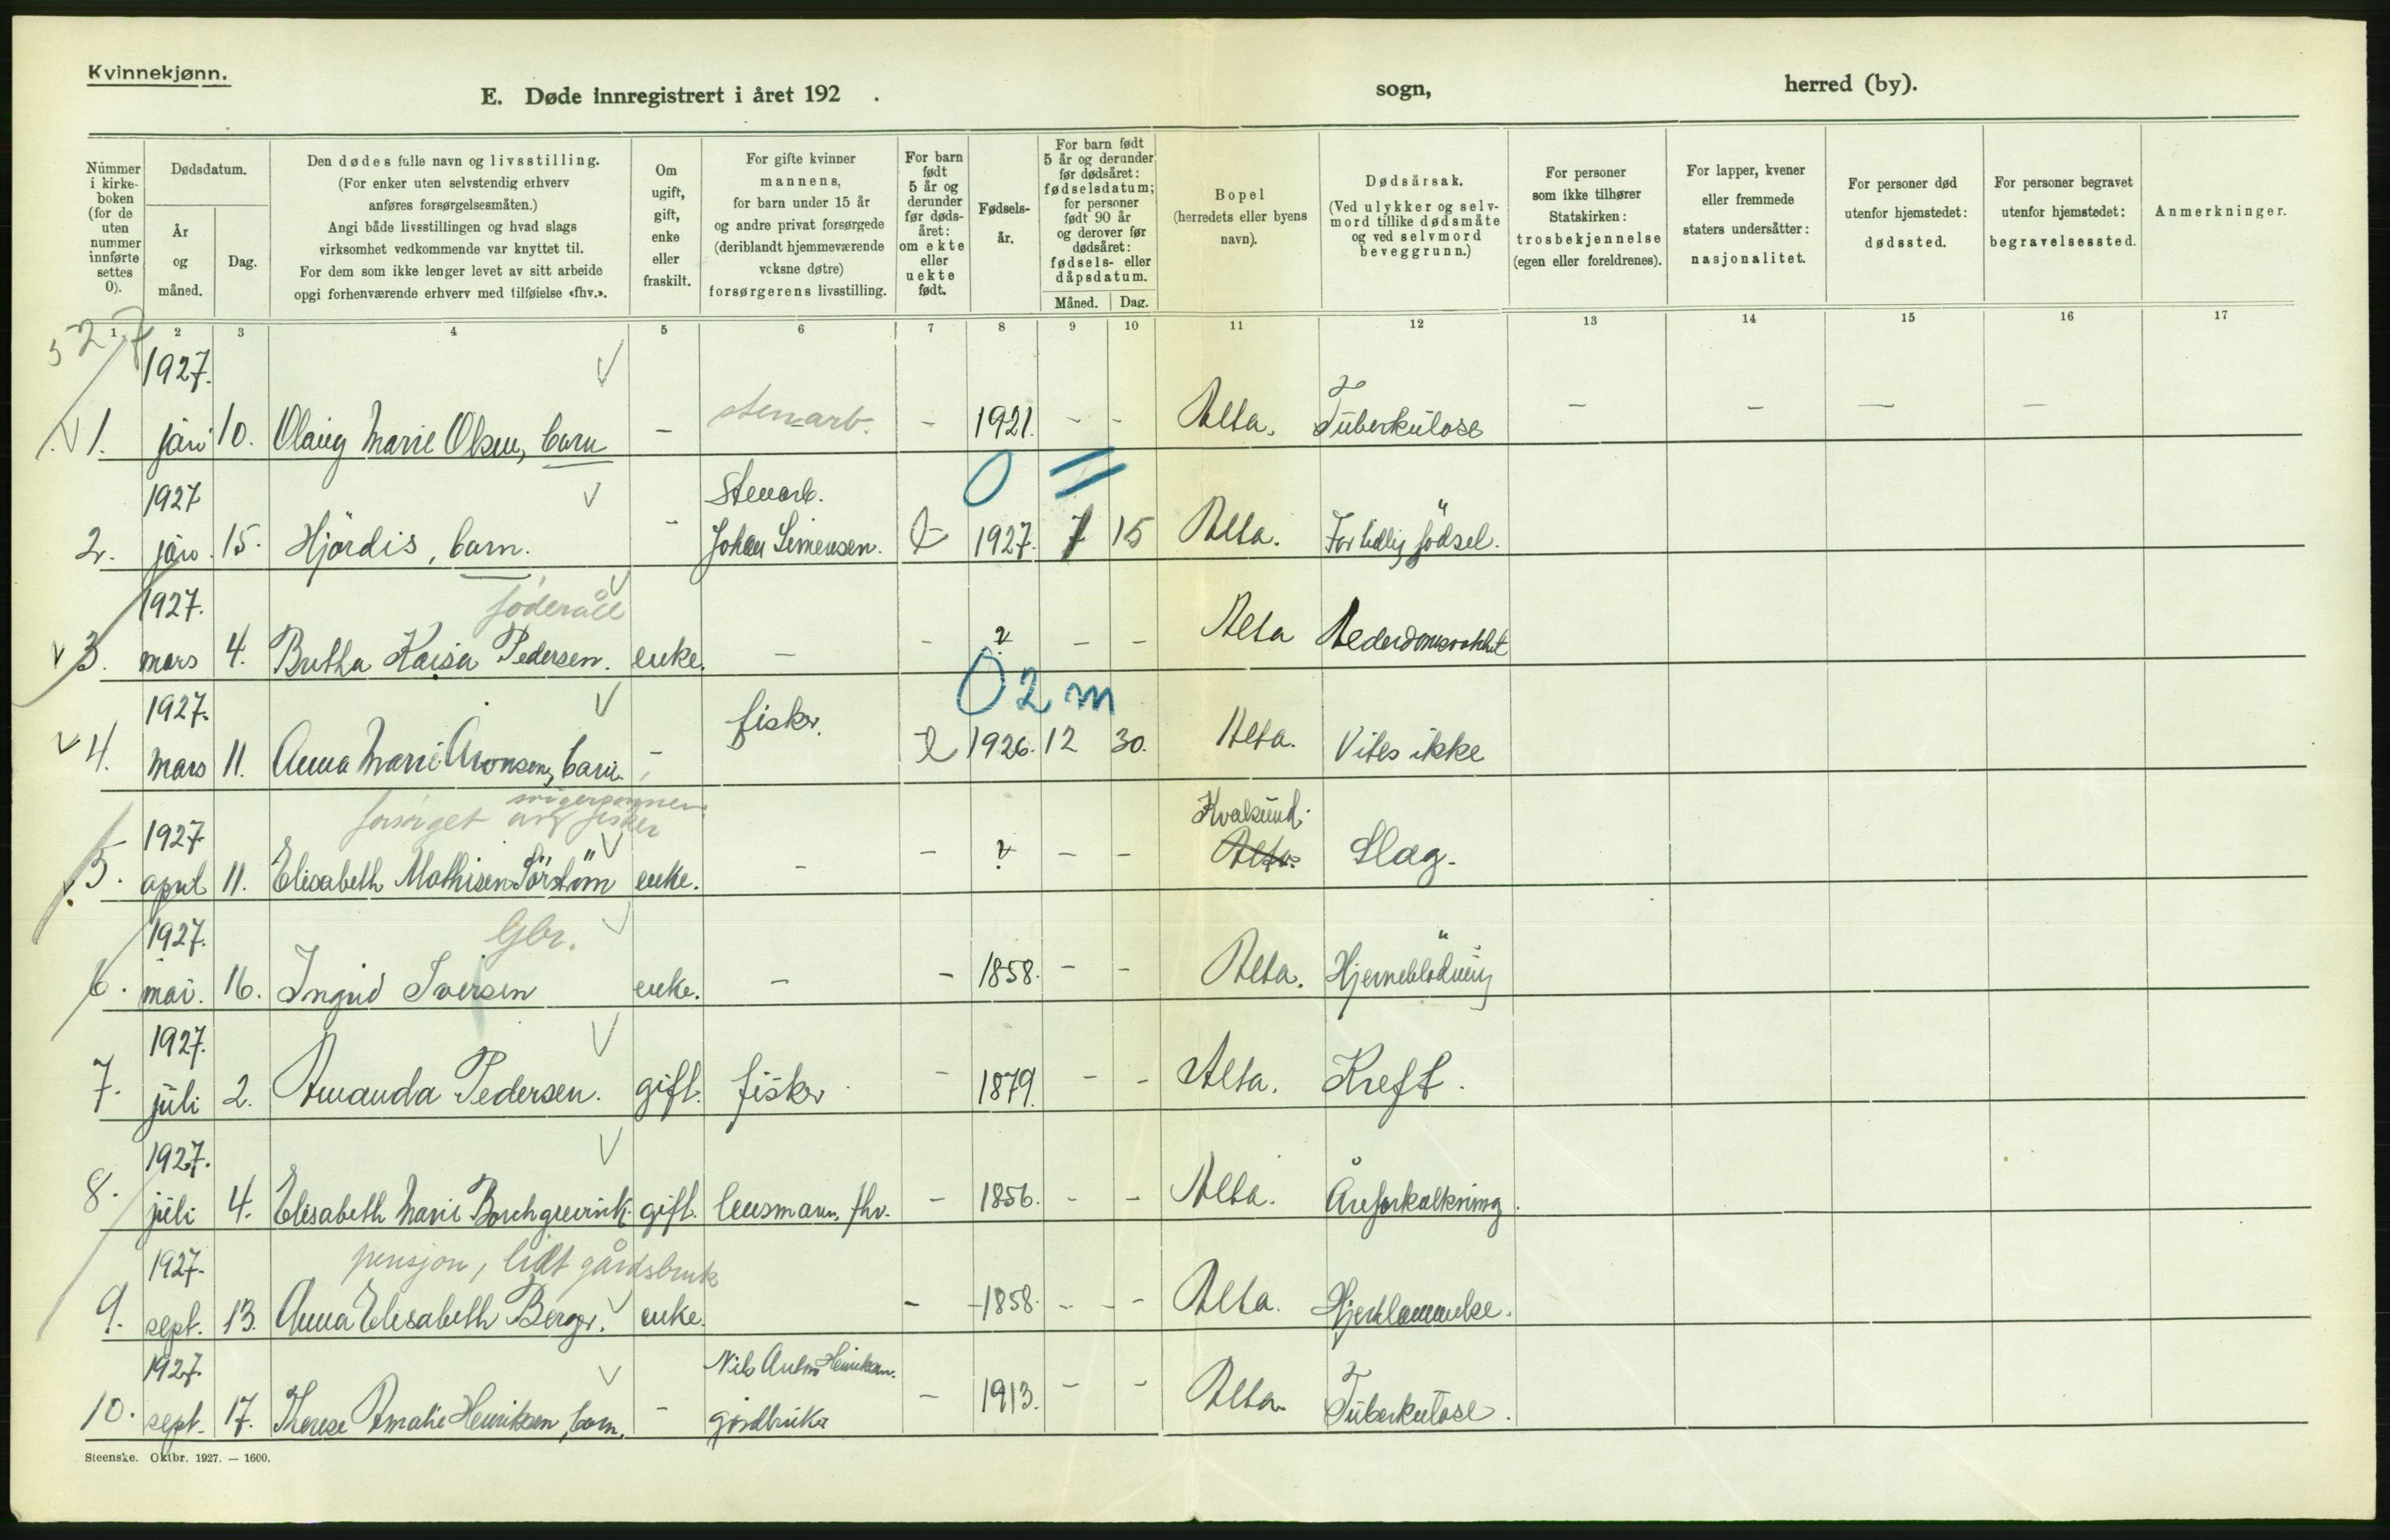 Kvinnekjønn.
E. Døde innregistrert i året 192 . sogn, herred (by).
Nummer i kirkeboken (for de uten nummer innførte settes 0).
Dødsdatum.
År og måned.
Dag.
Den dødes fulle navn og livsstilling.
(For enker uten selvstendig erhverv
anføres forsørgelsesmåten.)
Angi både livsstillingen og hvad slags
virksomhet vedkommende var knyttet til.
For dem som ikke lenger levet av sitt arbeide
opgi forhenværende erhverv med tilføielse «fhv.».
Om ugift, gift, enke eller fraskilt.
For gifte kvinner
mannens,
for barn under 15 år
og andre privat forsørgede
(deriblandt hjemmeværende
voksne døtre)
forsørgerens livsstilling.
For barn født 5 år og derunder før dødsåret: om ekte eller uekte født.
Fødsels-
år.
For barn født
5 år og derunder
før dødsåret:
fødselsdatum;
for personer
født 90 år
og derover før
dødsåret:
fødsels- eller
dåpsdatum.
Måned. Dag.
Bopel
(herredets eller byens
navn).
Dødsårsak.
(Ved ulykker og selv-
mord tillike dødsmåte
og ved selvmord
beveggrunn.)
For personer
som ikke tilhører
Statskirken:
trosbekjennelse
(egen eller foreldrenes).
For lapper, kvener
eller fremmede
staters undersåtter:
nasjonalitet.
For personer død
utenfor hjemstedet:
dødssted.
For personer begravet
utenfor hjemstedet:
begravelsessted.
Anmerkninger.
1 2 3 4 5 6 7 8 9 10 11 12 13 14 15 16 17
527
1927.
1. jan 10. Olaug Marie Olsen, barn - stenarb. - 1921. - - Alta. Tuberkulose - - - -
1927 Stenarb. 0
2. jan. 15. Hjördis, barn. - Johan Simensen. E 1927. 1 15 Alta. For tidlig födsel.
1927. föderåd
3. mars 4. Kaisa Pedersen. enke. - - ? - - Alta Alderdomssvakhet
1927. fisker. 0 2 m
4. mars 11. Anna Marie Aronsen, barn. - E 1926. 12 30. Alta. Vites ikke
1927 forsörget av svigersønnen fisker Kvalsund.
5. april 11. Elisabeth Mathisen enke. - - ? - - Alta. Slag.
1927. Gbr.
6. mai. 16. Ingrid Iversen enke. - - 1858. - - Alta. Hjerneblödning
1927.
7. juli 2. Amanda Pedersen. gift. fisker - 1879. - - Alta. Kreft.
1927.
8. juli 4. Elisabeth Marie Borchgrevink gift. lensmann, fhv. - 1856. - - Alta. Åreforkalkning.
1927. pensjon, lidt gårdsbruk
9. sept. 13. Anna Elisabeth Berger. enke. - 1858. - - Alta. Hjertelammelse.
1927. Nils Anton Henriksen.
10. sept. 17. Therese Amalie Henriksen, barn. - gårdbruker - 1913. - - Alta. Tuberkulose.
Steenske. Oktbr. 1927. — 1600.